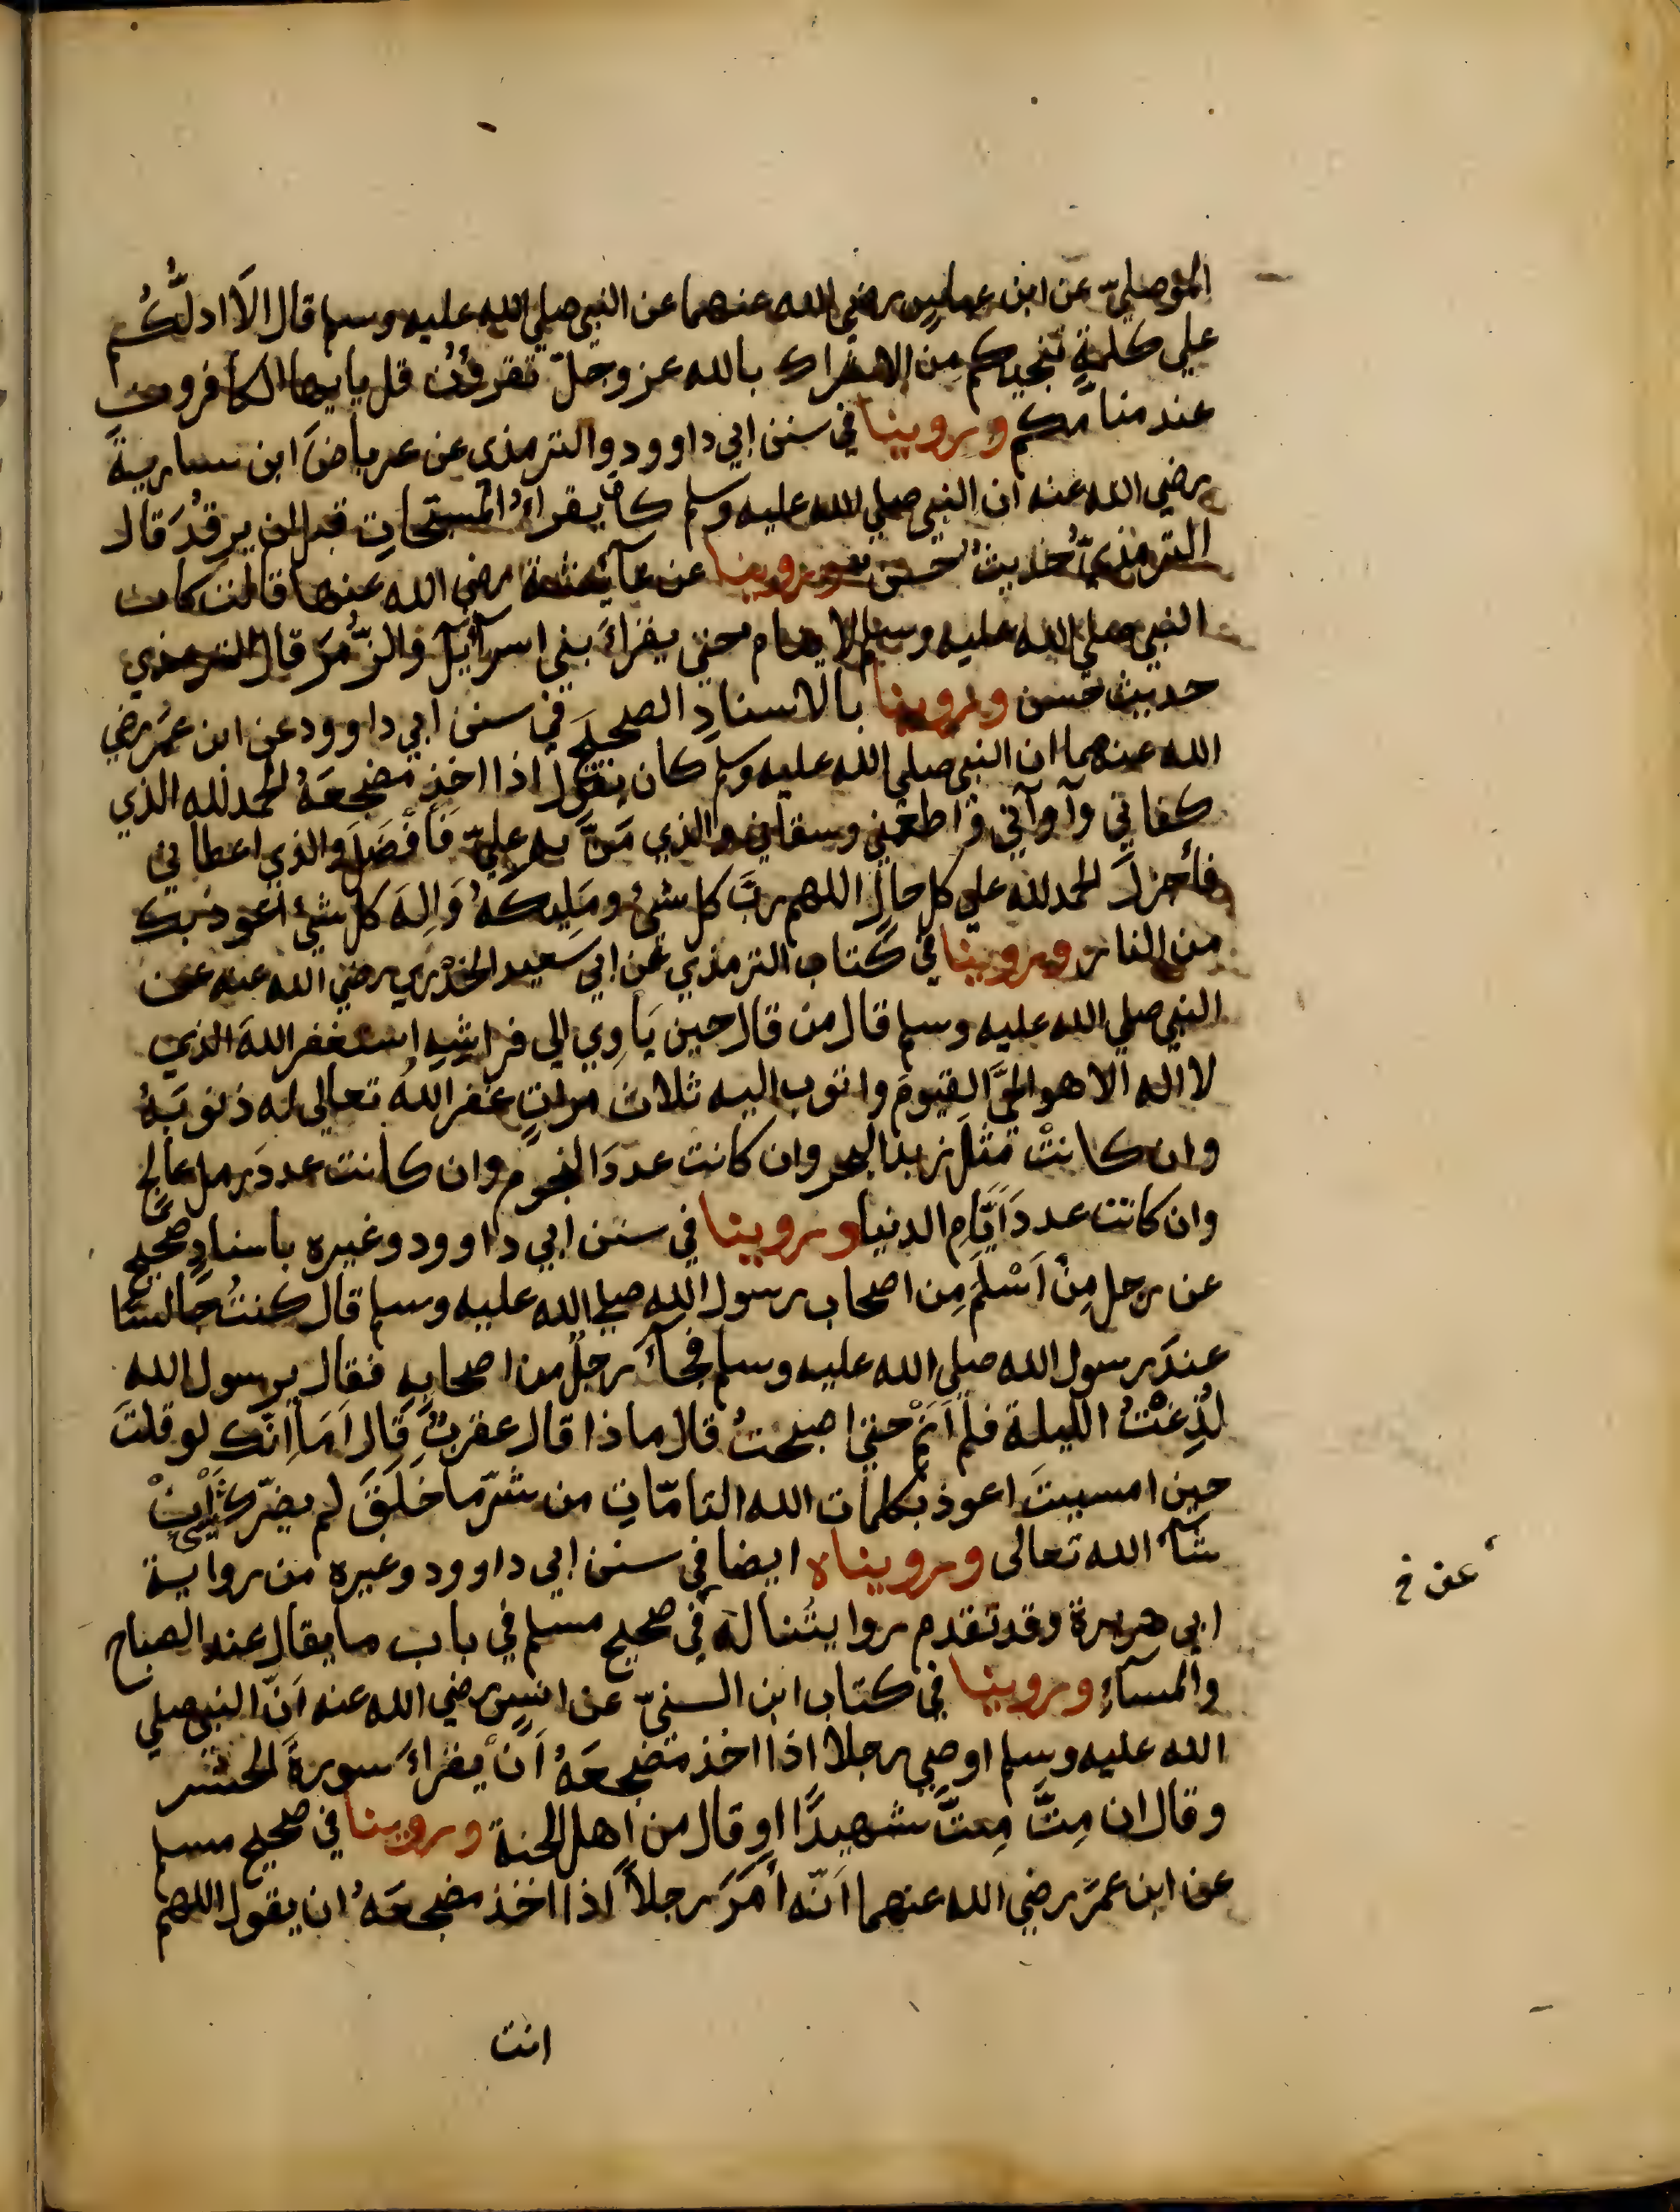 الموصليّ عن ابن عباس رضي الله عنهما عن النبي صلي الله عليه وسلم قال الَا ادلُّكُم
علي كلمةٍ تنجيكم من الاشراك بالله عز وجلّ تقرؤن قل يايها الكافرون
عند منامكم وروينا في سنن ابي داوود والترمذي عن عرباض ابن سارية
رضي الله عنه ان النبي صلي الله عليه وسلم كان يقراءُ المسبّحاتِ قبل ان يرقدَ قال
الترمذيّ حديثٌ حسن وروينا عن عآئشة رضي الله عنها قالت كان
النبي صلي الله عليه وسلم لا ينام حتي يقراءَ بني اسرآئيل والزُّمَرَ قال الترمذي
حديث حسن وروينا بالاسنادِ الصحيح في سنن ابي داوود عن ابن عمَر رضي
الله عنهما ان النبي صلي الله عليه وسلم كان يقول اذا اخذ مضجعَهُ الحمد لله الذي
كفاني وآوآني واطعمني وسقاني والذي مَنّ به عليّ فَأَفْضَلَ والذي اعطاني
فأجزلَ الحمد لله علي كل حالٍ اللهم ربَّ كل شئ ومَلِيكَهُ وَالِهَ كل شئ اعوذ بك
من النار وروينا في كتاب الترمذي عن ابي سعيد الخُدْري رضي الله عنه عن
النبي صلي الله عليه وسلم قال من قال حين يَأوِي الي فراشِهِ استغفر اللهَ الذي
لا اله الا هو الحيَّ القيومَ واتوب اليه ثلاث مراتٍ غفر اللهُ تعالي له ذنوبَهُ
وان كانتْ مثلَ زبد البحر وان كانت عددَ النجوم وان كانت عددَ رمل عالجٍ
وان كانت عددَ أيَّامِ الدنيا وروينا في سنن ابي داوود وغيره باسنادٍ صحيح
عن رجل مِنْ اَسْلَمَ مِن اصحاب رسول الله صلي الله عليه وسلم قال كنتُ جالسًا
عندَ رسول الله صلي الله عليه وسلم فجآءَ رجلٌ من اصحابِهِ فقال يرسول الله
لُدِغْتُ الليلة فلم اَنَمْ حتي اصبحتُ قال ماذا قال عقربٌ قال اَمَا اِنّك لو قلتَ
حين امسيتَ اعوذ بكلمات الله التامّاتِ من شرّ ما خلَقَ لم يضرّك شئ اِنْ
شآءَ الله تعالى ورويناه ايضا في سنن ابي داوود وغيره من رواية
عن خ
ابي هريرة وقد تقدم روايتُنا له في صحيح مسلم في باب ما يقال عند الصباح
والمسآءِ وروينا في كتاب ابن السنيّ عن انس رضي الله عنه اَنّ النبي صلي
الله عليه وسلم اوصي رجلا اذا اخذ مضجعَهُ اَنْ يقراءَ سورةَ الحشر
وقال ان مِتَّ مِتَّ شهيدًا او قال من اهل الجنة وروينا في صحيح مسلم
عن ابن عمرَ رضي الله عنهما اَنّه أمَرَ رجلاً اذا اخذ مضجعَهُ ان يقول اللهم
انت